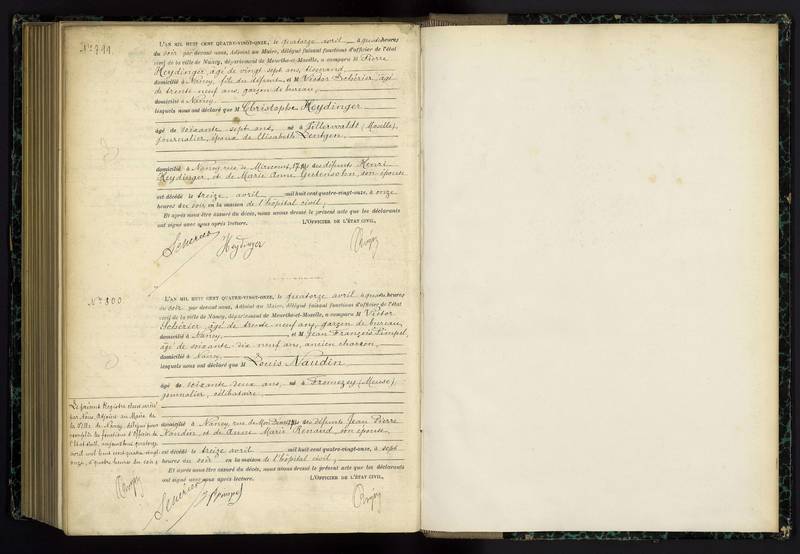 N° 799.
L'AN MIL HUIT CENT QUATRE-VINGT-ONZE, le quatorze avril à quatre heures
du soir par devant nous, Adjoint au Maire, délégué faisant fonctions d'officier de l'état
civil de la ville de Nancy, département de Meurthe-et-Moselle, a comparu M Pierre
Heydinger, âgé de vingt sept ans,
domicilié à Nancy, fils du défunt, et M Victor Schérier, âgé
de trente neuf ans, garçon de bureau,
domicilié à Nancy
lesquels nous ont déclaré que M Christophe Heydinger
âgé de soixante sept ans, né à Filserwaldt (Moselle),
journalier, époux de Elisabeth Zentgen,
domicilié à Nancy, rue de Mirecourt, 17, des défunts Henri
Heydinger, et de Marie Anne son épouse
est décédé le treize avril mil huit cent quatre-vingt-onze, à onze
heures du soir en la maison de l'hôpital civil,
Et après nous être assuré du décès, nous avons dressé le présent acte que les déclarants
ont signé avec nous après lecture. L'OFFICIER DE L'ÉTAT CIVIL,
Scherier Heydinger
N° 800
L'AN MIL HUIT CENT QUATRE-VINGT-ONZE, le quatorze avril à quatre heures
du soir par devant nous, Adjoint au Maire, délégué faisant fonctions d'officier de l'état
civil de la ville de Nancy, département de Meurthe-et-Moselle, a comparu M Victor
Schérier, âgé de trente neuf ans, garçon de bureau,
domicilié à Nancy, et M Jean François Pimpel,
âgé de soixante dix neuf ans, ancien charron,
domicilié à Nancy,
lesquels nous ont déclaré que M Louis Naudin
âgé de soixante deux ans, né à Fromezey (Meuse),
journalier, célibataire
domicilié à Nancy, rue de des défunts Jean Pierre
Naudin, et de Anne Marie Renaud, son épouse
est décédé le treize avril mil huit cent quatre-vingt-onze, à sept
heures du soir en la maison de l'hôpital civil,
Et après nous être assuré du décès, nous avons dressé le présent acte que les déclarants
ont signé avec nous après lecture. L'OFFICIER DE L'ÉTAT CIVIL,
Scherier
Le présent Registre clos et arrêté
par Nous, Adjoint au Maire de
la Ville de Nancy, délégué pour
remplir les fonctions d'Officier de
l'Etat Civil, aujourd'hui quatorze
avril mil huit cent quatre-vingt-
onze, à quatre heures du soir